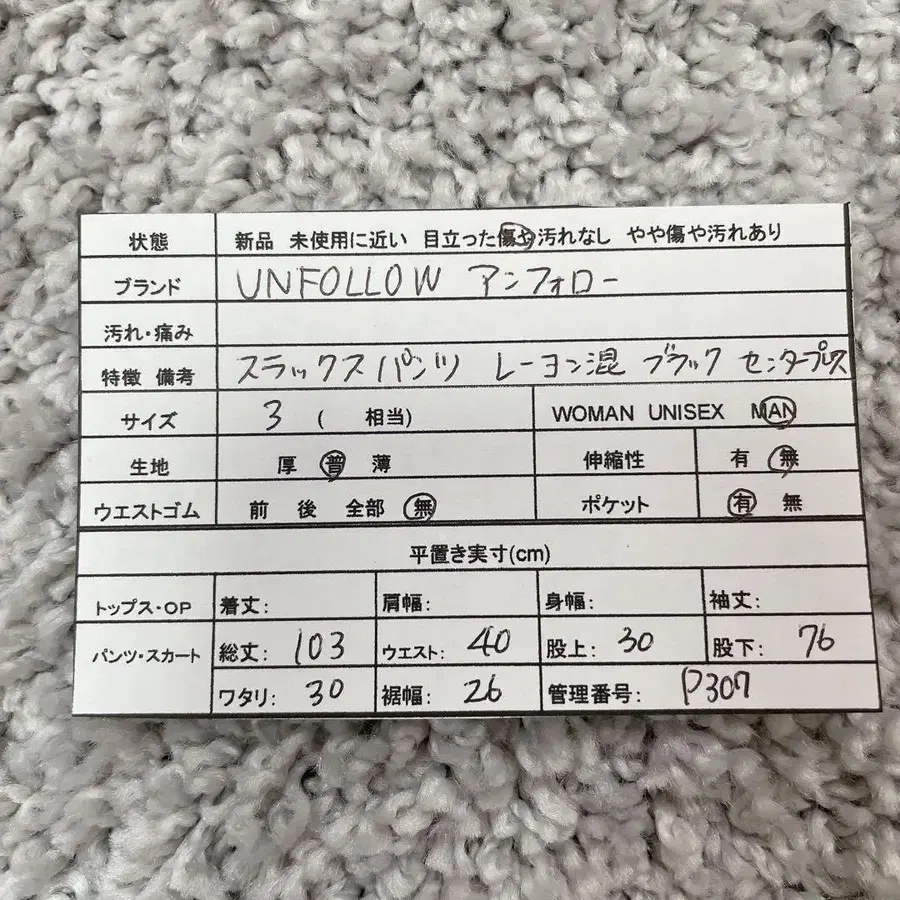 状態 新品 未使用に近い 目立った傷や汚れなし やや傷や汚れあり
ブランド UNFOLLOW アンフォロー
汚れ・痛み
特徴 備考 スラックスパンツ レーヨン混 ブラック センタープレス
サイズ 3 ( 相当) WOMAN UNISEX MAN
生地 厚 普 薄 伸縮性 有 無
ウエストゴム 前 後 全部 無 ポケット 有 無
平置き実寸(cm)
トップス・OP 着丈: 肩幅: 身幅: 袖丈:
パンツ・スカート 総丈: 103 ウエスト: 40 股上: 30 股下: 76
ワタリ: 30 裾幅: 26 管理番号: P307